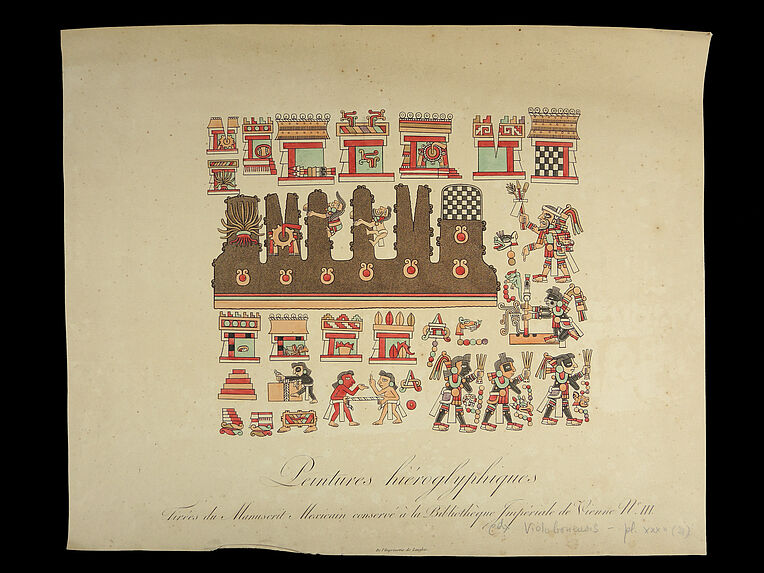 Peintures hiéroglyphiques
Tirées du Manuscrit Mexicain conservé à la Bibliothèque Impériale de Vienne N.º III.
De l'Imprimerie de Langlois